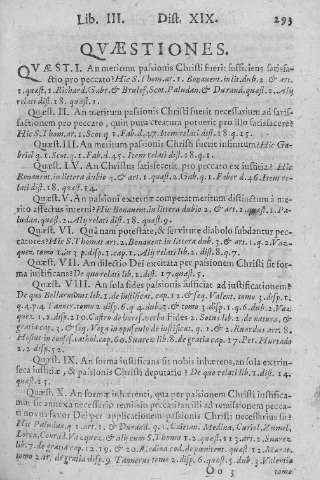 Lib. III. Dist. XIX. 293
QVÆSTIONES.
QVÆST. I. An meritum passionis Christi fuerit sufficiens satisfa-
ctio pro peccato? Hic S. Thom. ar. 1. Bonauent. in lit. dub. 2. & art.
1. quæst. 1. Richard. Gabr. & Brulef. Scot. Paludan. & Durand. quæst. 2. Alij
relati dist. 18. quæst. 1.
Quæst. II. An meritum passionis Christi fuerit necessarium ad satis-
factionem pro peccato, quin pura creatura potuerit pro illo satisfacere?
Hic S. Thom. ar. 1. Scot. q. 1. Fab. d. 47. Item relati dist. 18. q. 15.
Quæst. III. An meritum passionis Christi fuerit infinitum? Hic Ga-
briel q. 1. Scot. q. 1. Fab. d. 45. Item relati dist. 18. q. 1.
Quæst. IV. An Christus satisfecerit, pro peccato ex iustitia? Hic
Bonauent. in littera dubio 3. & art. 1. quæst. 2. Gab. q. 1. Fabor d. 46. Item re-
lati dist. 18. quæst. 14.
Quæst. V. An passioni exteriori competat meritum distinctum à me-
rito affectus interni? Hic Bonauent. in littera dubio 2. & art. 2. quæst. 1. Pa-
ludan. quæst. 2. Alij relati dist. 38. quæst. 9.
Quæst. VI. Quànam potestate, & seruitute diabolo subdantur pec-
catores? Hic S. Thomas art. 2. Bonauent. in littera dub. 3. & art. 1. q. 2. Vaz-
quez tomo 1. in 3. p. disp. 3. cap. 1. Alij relati lib. 2. dist. 8. q. 7.
Quæst. VII. An dilectio Dei excitata per passionem Christi sit for-
ma iustificans? De quo relati lib. 1. dist. 17. quæst. 5.
Quæst. VIII. An sola fides passionis iustificet ad iustificationem?
De quo Bellarminus lib. 1. de iustific. cap. 12. & seq. Valent. tomo 2. disp. 8.
q. 4. p. 4. Tanner. tomo 2. disp. 6. q. 4. dub. 3. & tomo 3. disp. 1. q. 6. dub. 2. Vaz-
quez 1. 2. disp. 210. Castro de hæref. verbo Fides 2. Sotus lib. 2. de natura, &
gratia cap. 7. & seq. Vega in opusculo de iustificat. q. 1. & Ruardus art. 8.
Hosius in confess. cathol. cap. 60. Suarez lib. 8. de gratia cap. 17. Pet. Hurtado
2. 2. disp. 52.
Quæst. IX. An forma iustificans sit nobis inhærens, an sola extrin-
seca iustitia, & passionis Christi deputatio? De quo relati lib. 1. dist. 14.
quæst. 25.
Quæst. X. An formæ inhærenti, qua per passionem Christi iustifica-
mur sit annexa necessario remissio peccati
nouus fauor Dei per applicationem passionis Christi necessarius sit?
Hic Paludan. q. 1. art. 1. & Durand. q. 1. Caietan. Medina, Curiel, Zumel,
Lorca, Conrad. Vazquez, & alij cum S. Thoma 1. 2. quæst. 113. art. 2. Suarez
lib. 7. de gratia cap. 12. 19. & 20. Medina cod. de pœnitent. quæst. 12. Marat.
tomo 2. tr. de gratia disp. 9. Tannerus tomo 2. disp. 6. quæst. 5. dub. 3. Valentia
Oo 3 tomo